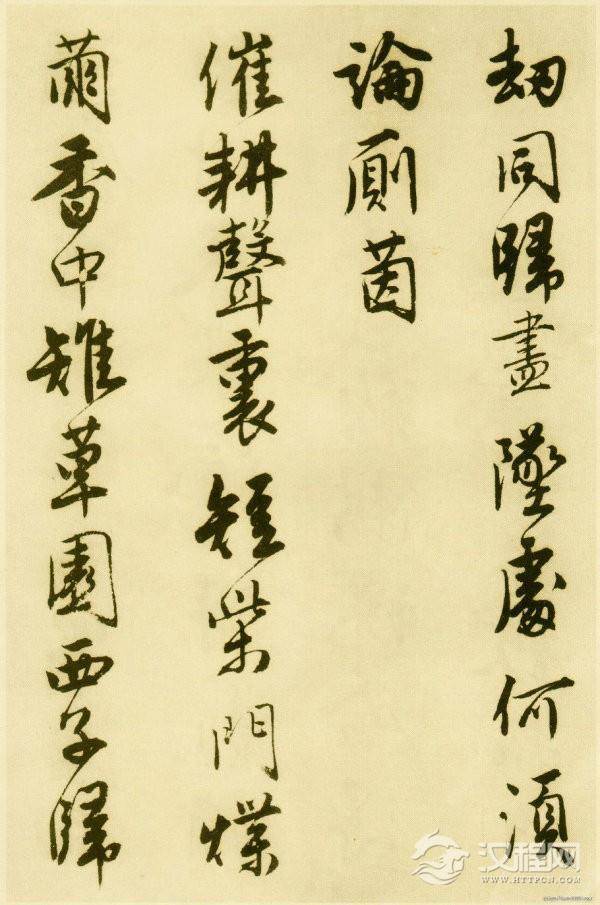 刧同歸盡墜處何須
論厠茵
催耕聲裏短柴門煠
繭香中雉草園西子歸
汉程网
WWW.HTTPCN.COM